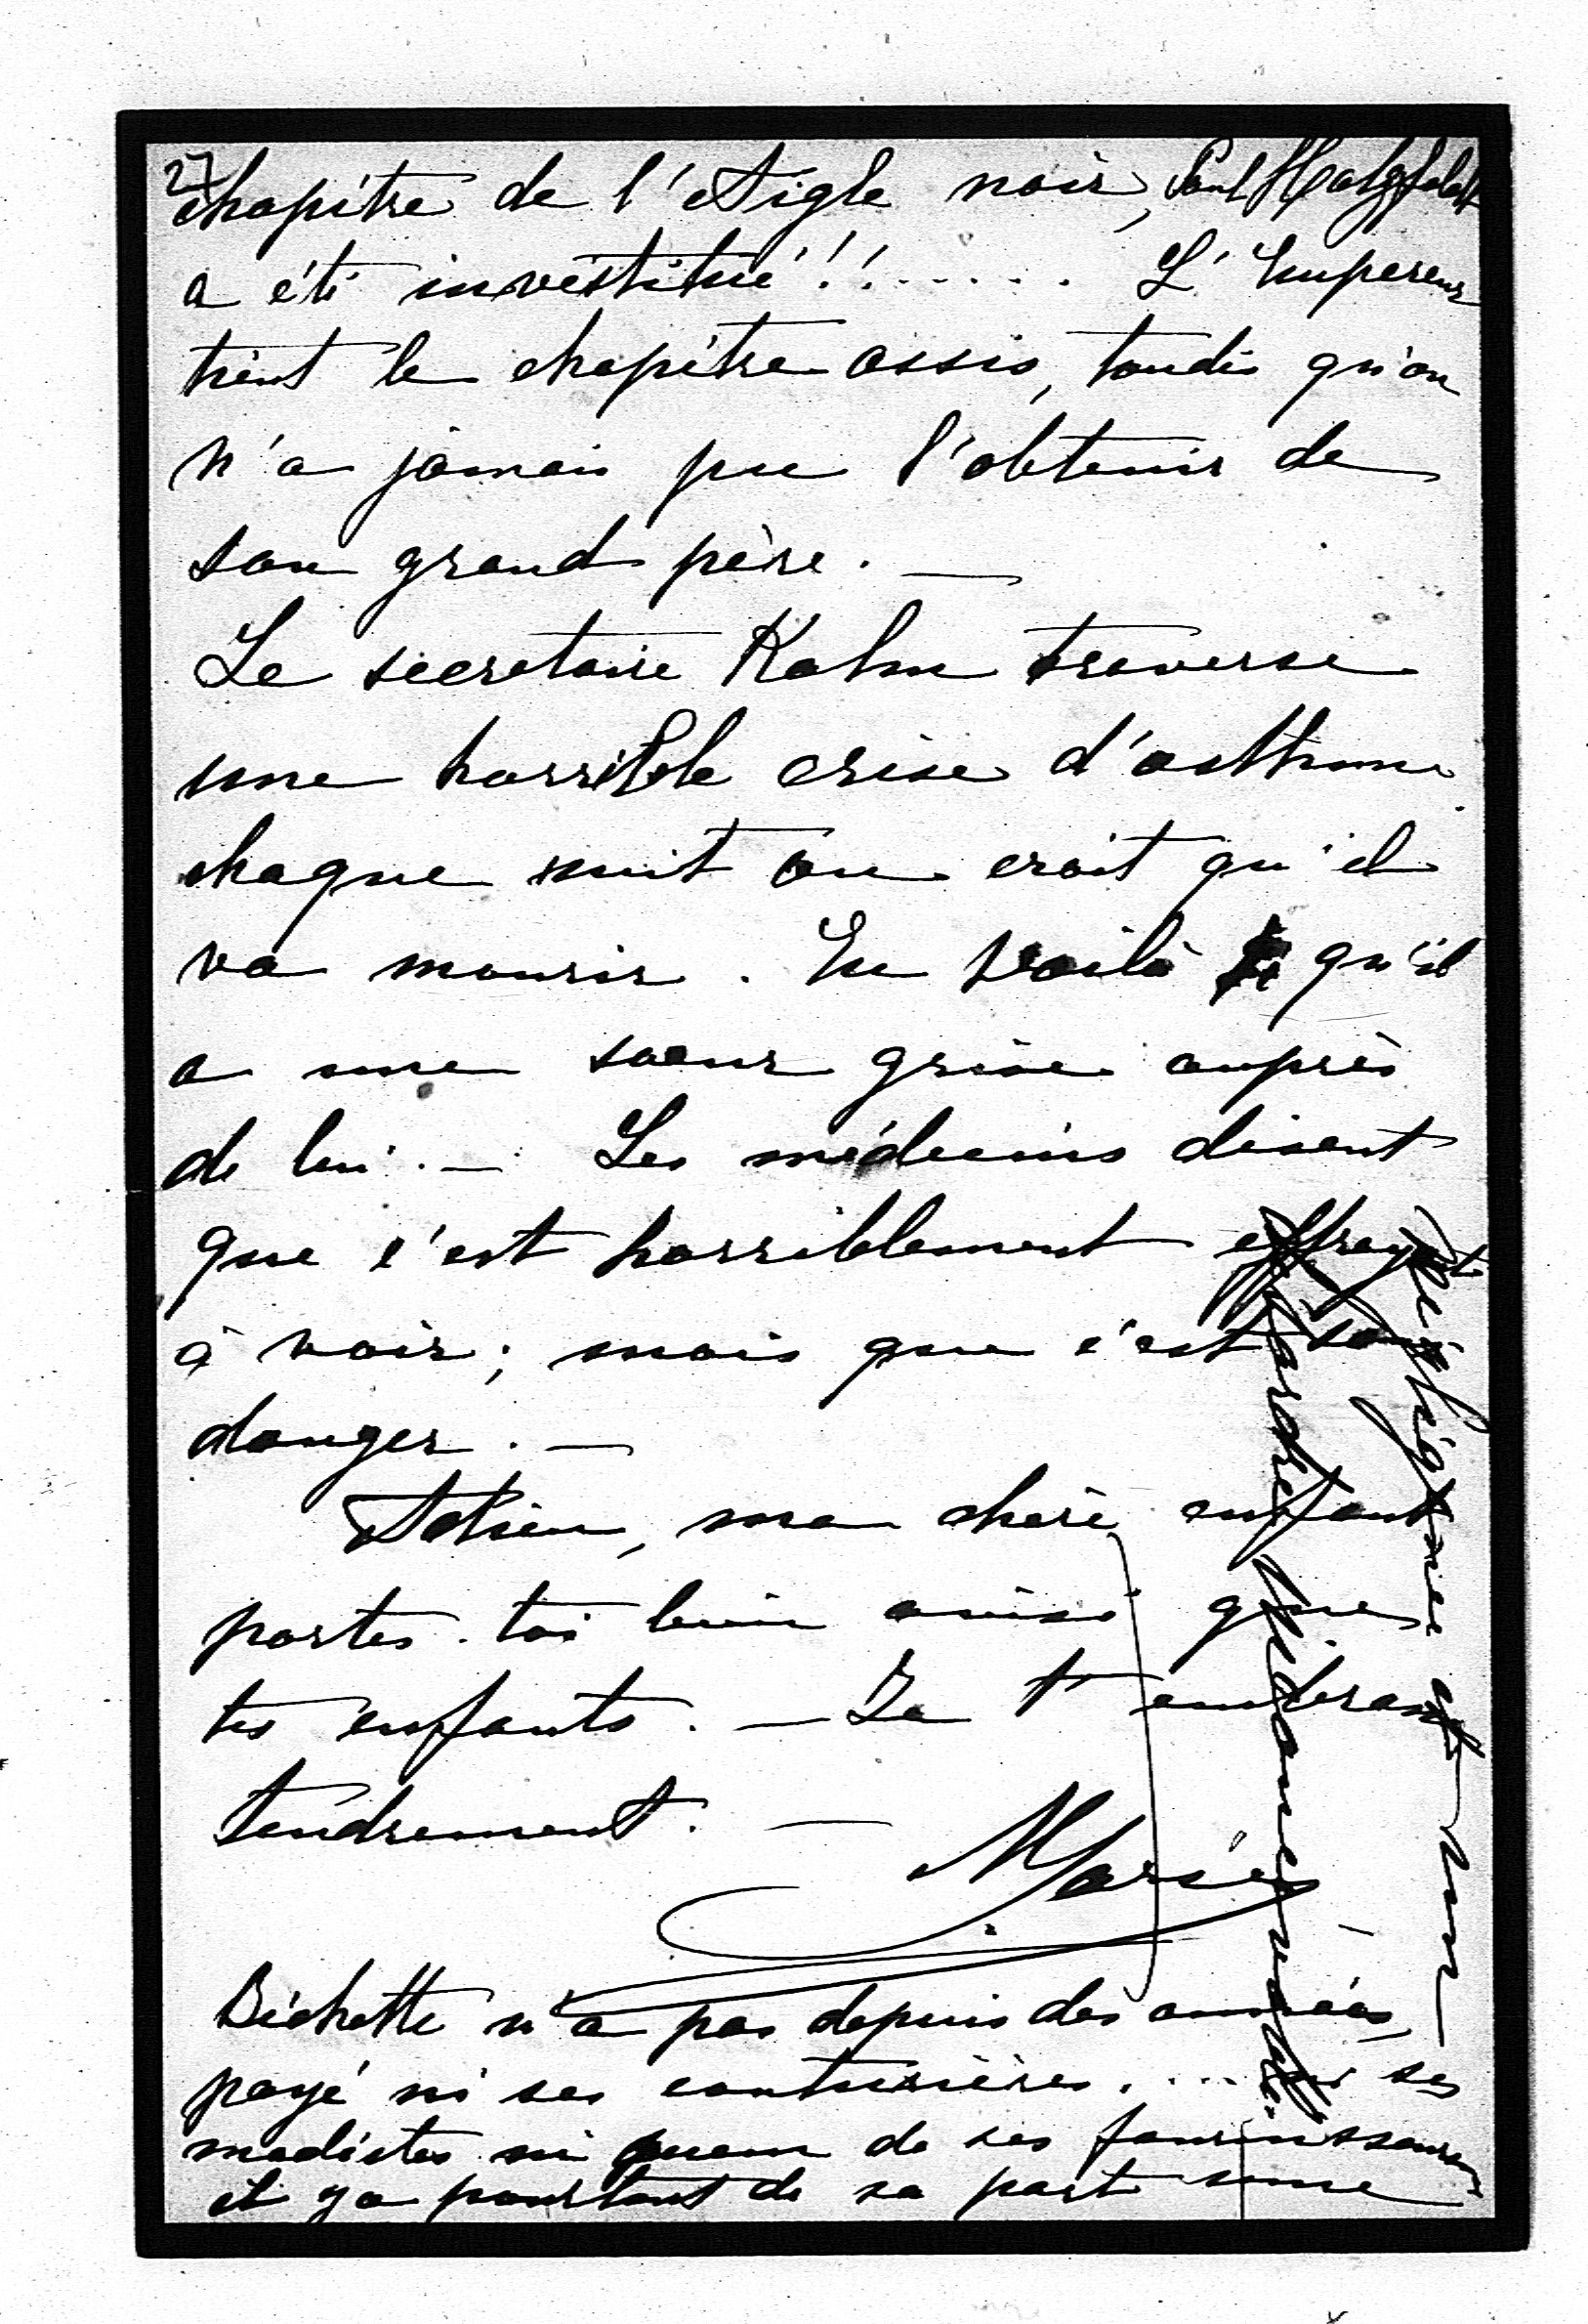 27
chapitre de l'Aigle noir, Paul Hatzfeldt
a été investitué!!...... L'Empereur
tient le chapitre assis, tandis qu'on
n'a jamais pu l'obtenir de
son grand père. —
Le secretaire Kahn traverse
une horrible crise d'asthme
chaque nuit on croit qu'il
va mourir. En voilà qu'il
a une sœur grise auprès
de lui. — Les médecins disent
que c'est horriblement effrayant
à voir; mais que c'est sans
danger. —
Adieu, ma chère enfant
portes-toi bien ainsi que
tes enfants. — Je t'embrasse
tendrement. —
Marie
Bichette n'a pas depuis des années,
payé ni ses couturières.... ni ses
modistes ni aucun de ses fournisseurs
il y a pourtant de sa part une
négligence et un
désordre